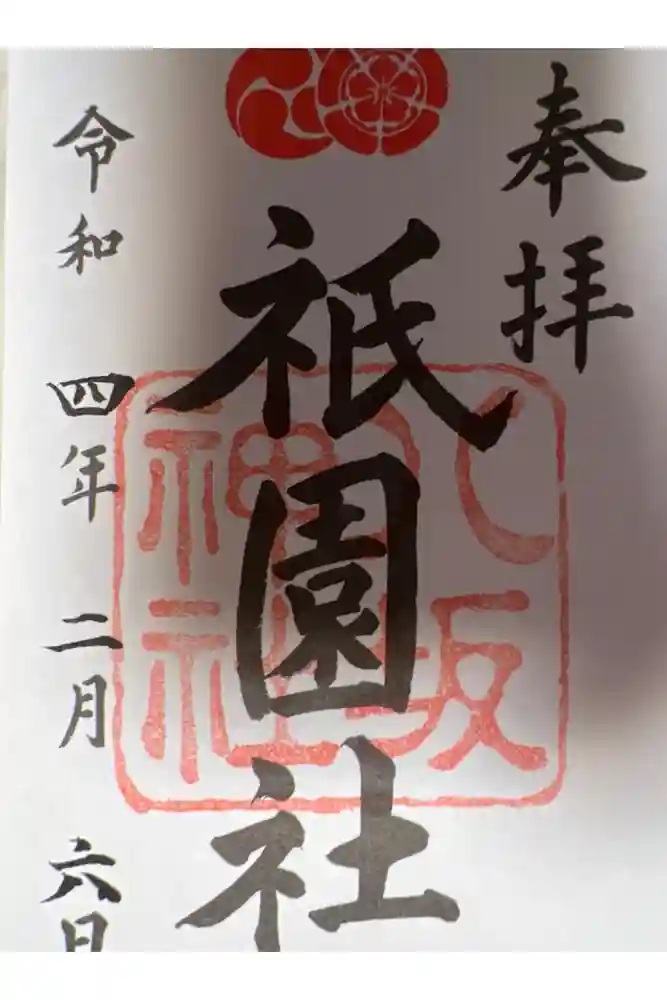 奉拝
祇園社
八坂神社
令和四年二月六日